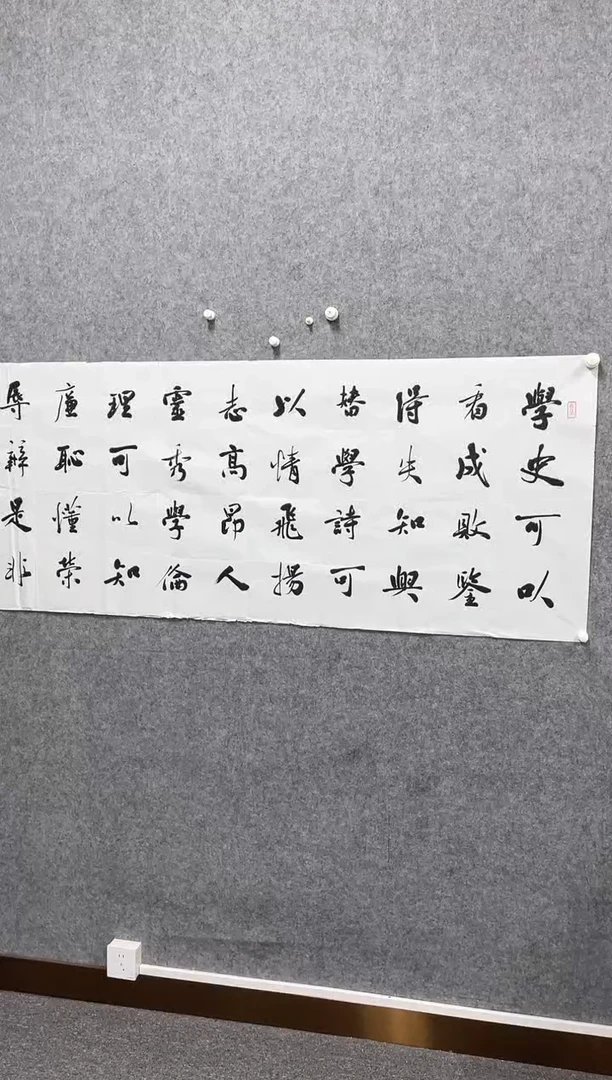 學史可以
看成敗鑒
得失知興
替學詩可
以情飛揚
志高昂人
靈秀學倫
理可以知
廉恥懂榮
辱辧是非